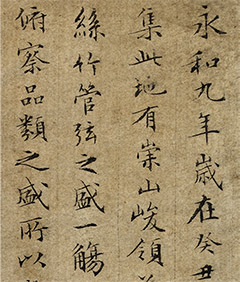 永和九年歲在癸丑
集此地有崇山峻領
絲竹管弦之盛一觴
俯察品類之盛所以